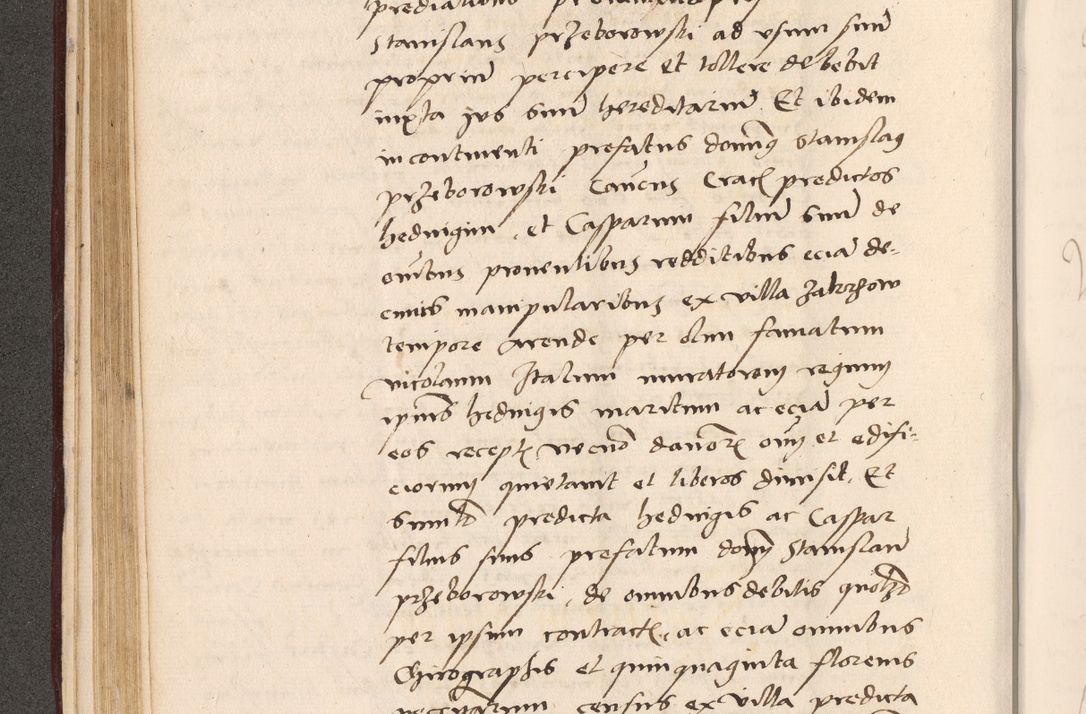 Stanislaus przeborowski ad vsum suum
proprium percipere et tollere debebit
iuxta jus suum hereditarium. Et ibidem
in continenti prefatus dominus Stanislaus
przeborowski Canonicus Crac predictos
hedwigim et Casparum filium suum de
omnibus prouentibus redditibus eciam de-
cimis manipularibus ex villa Zakrzow
tempore arende per olim famatum
Nicolaum Italum muratorem regium
ipsius hedwigis maritum ac eciam per
eos recept necnon damnorum ouium et edifi-
ciorum quietauit et liberos dimisit. Et
predicta hedwigis ac Caspar
filius suus prefatum dominum Stanislaum
przeborowski, de omnibus debitis
per ipsum contract, ac eciam omnibus
Chirographis et quinquaginta florenis
census ex villa predicta